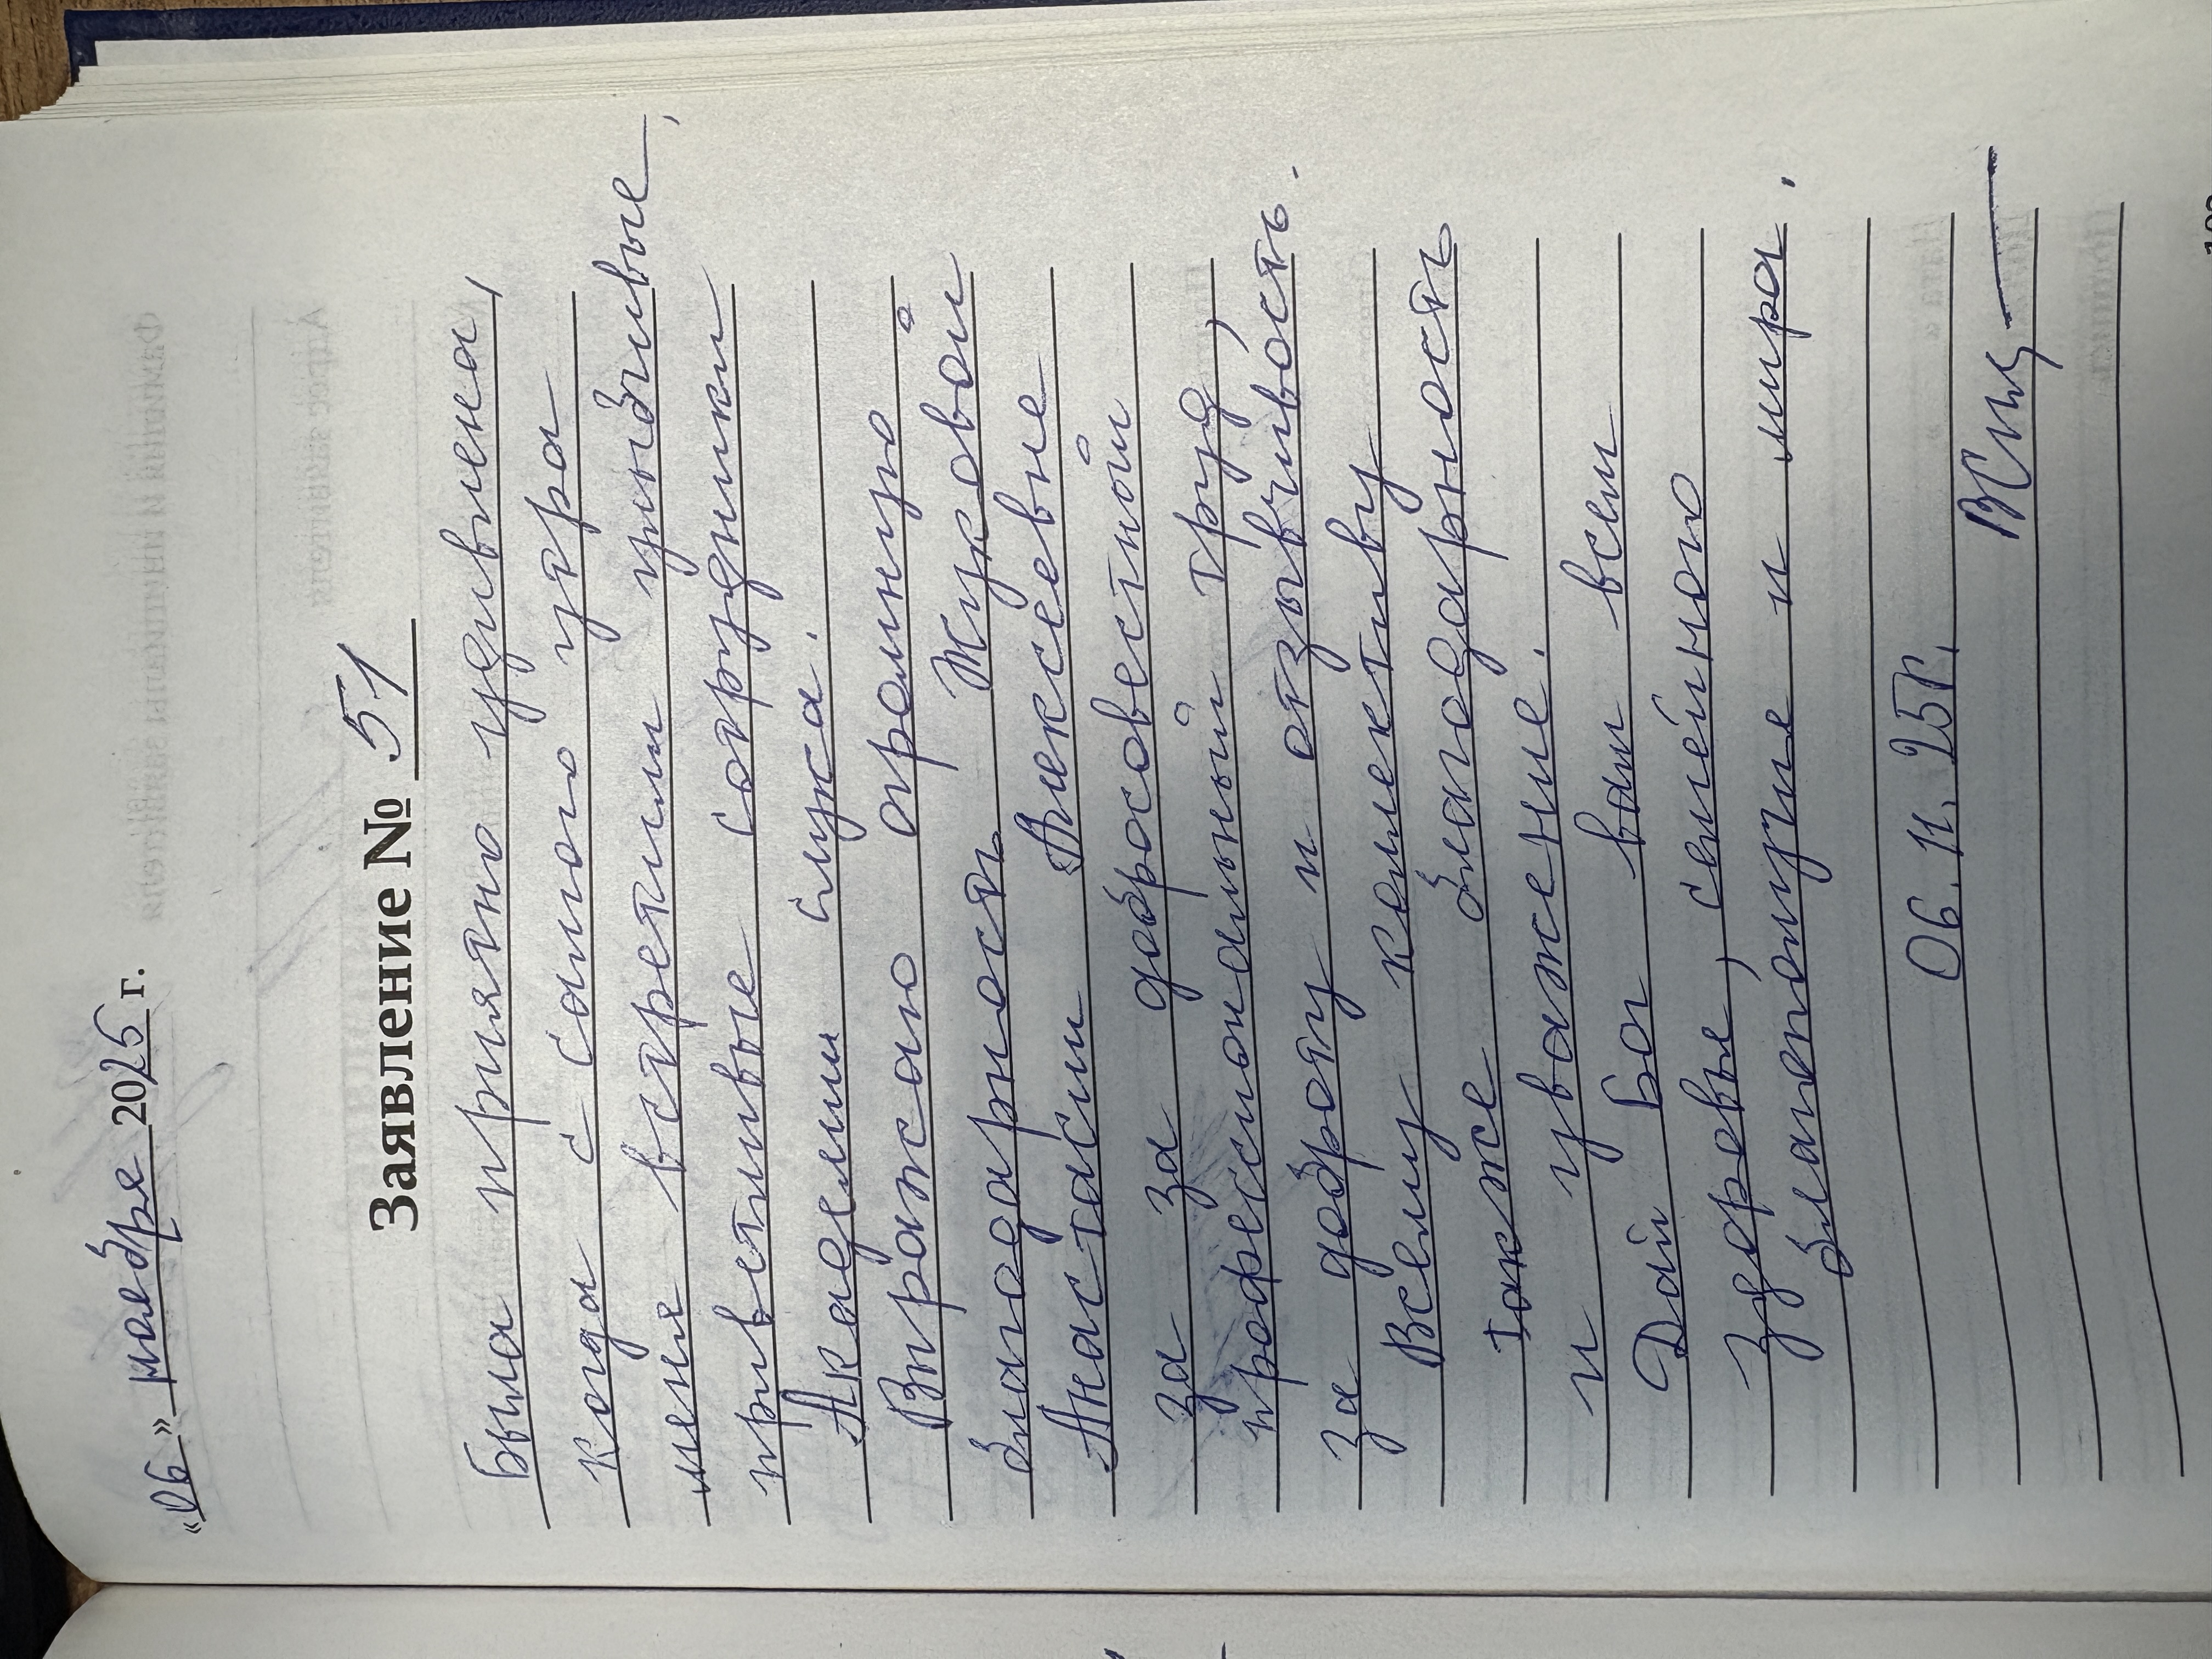 «06» ноября 2025 г.
Заявление № 51
Была приятно удивлена,
когда с самого утра
меня встретили улыбчивые,
приветливые сотрудники
Академии слуха.
Выражаю огромную
благодарность Жуковой
Анастасии Алексеевне
за за добросовестной
профессиональный труд,
за доброту и отзывчивость.
Всему коллективу
также благодарность
и уважение.
Дай Бог вам всем
здоровья, семейного
благополучия и мира.
06.11.25г.